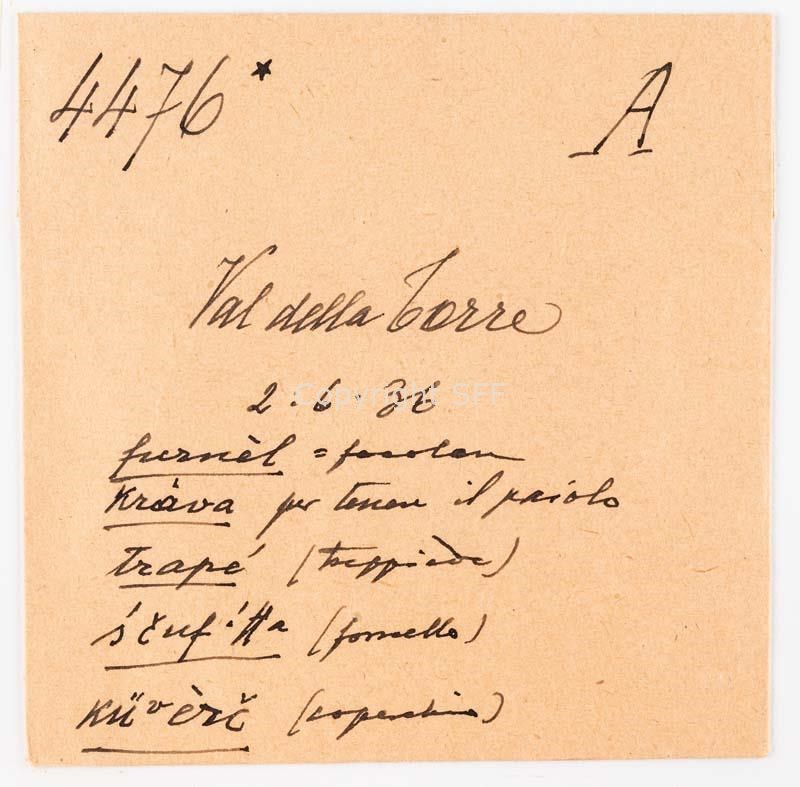 4476* A
Val della Torre
2.6.
Copyright SFF
furnèl =
kràva per tenere il paiolo
trapé (treppiede)
ščufitta (fornello)
küvèrč (coperchio)